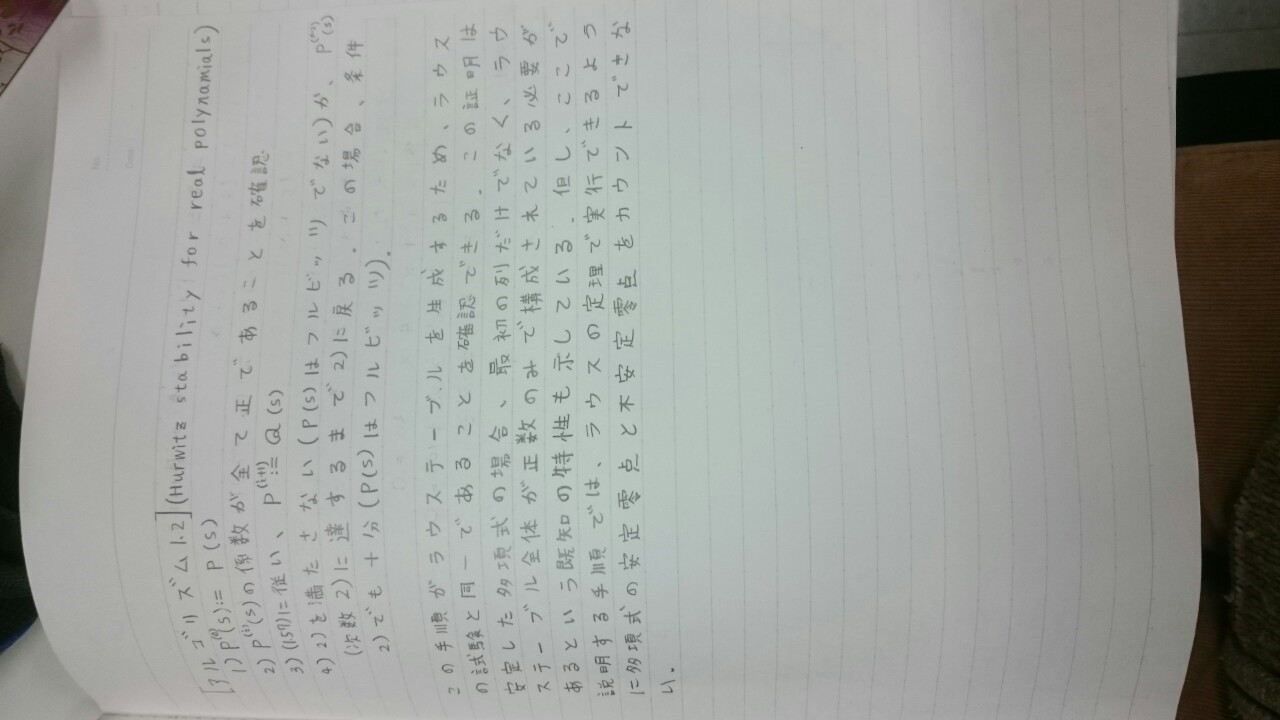 No.
Date
[アルゴリズム1.2](Hurwitz stability for real polynamials)
1) P⁽⁰⁾(s):= P(s)
2) P⁽ⁱ⁾(s)の係数が全て正であることを確認
3) (1.57)に従い、P⁽ⁱ⁺¹⁾:= Q(s)
4) 2)を満たさない(P(s)はフルビッツでない)か、P⁽ⁿ⁻²⁾(s)
(次数2)に達するまで2)に戻る.この場合、条件
2)でも十分(P(s)はフルビッツ).
この手順がラウステーブルを生成するため、ラウス
の試験と同一であることを確認できる.この証明は
安定した多項式の場合、最初の列だけでなく、ラウ
ステーブル全体が正数のみで構成されている必要が
あるという既知の特性も示している.但し、ここで
説明する手順では、ラウスの定理で実行できるよう
に多項式の安定零点と不安定零点をカウントできな
い.